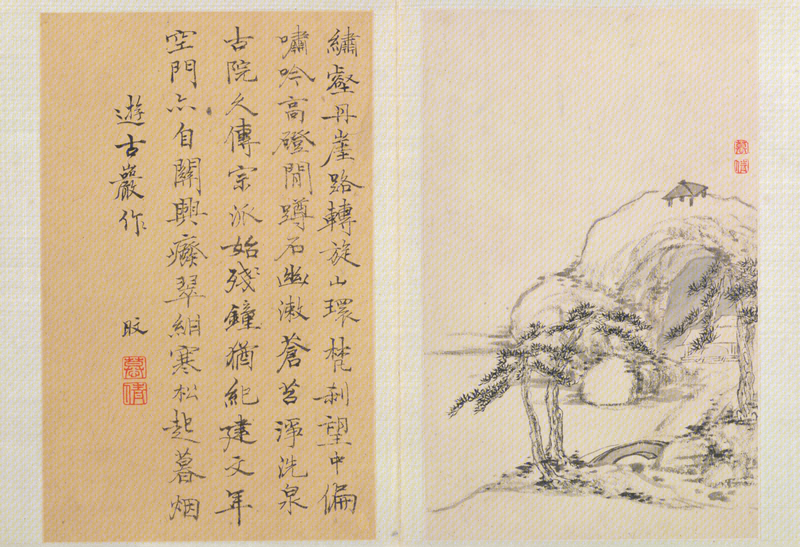 繡壑丹崖路轉旋山環梵刹望中偏
嘯吟高磴閒蹲石幽漱蒼苔淨洗泉
古院久傳宗派始殘鐘猶紀建文年
空門亦自關興癈翠寒松起暮烟
遊古巖作